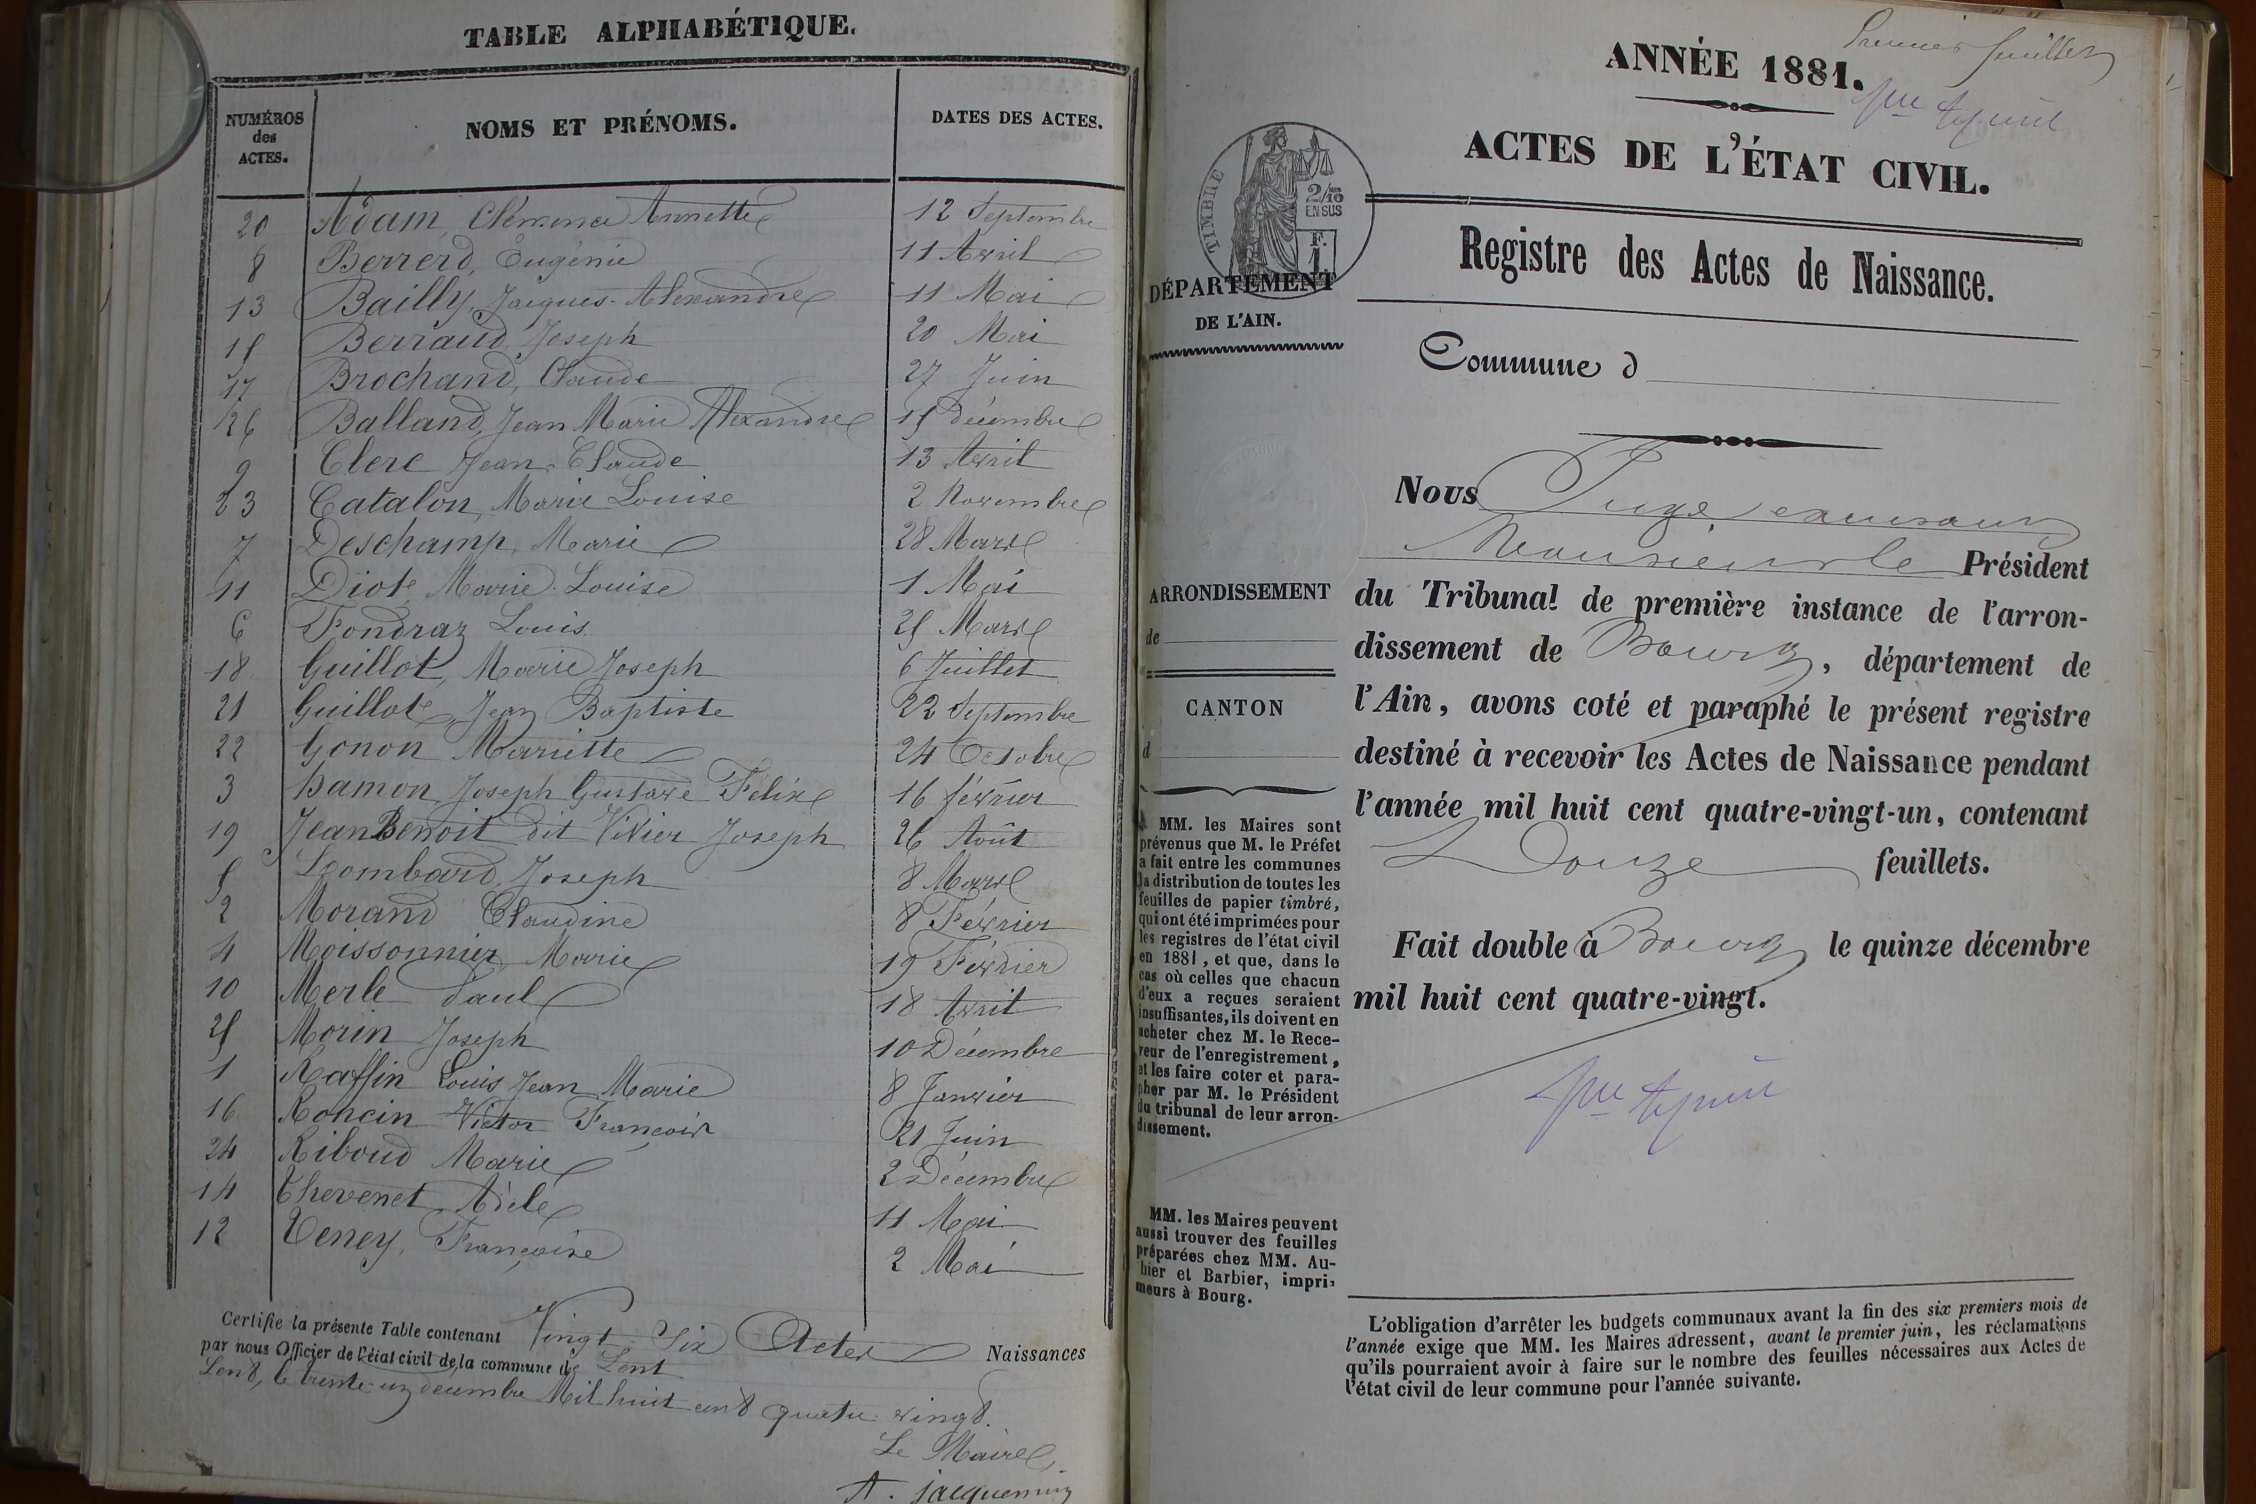 TABLE ALPHABÉTIQUE.
NUMÉROS des ACTES. NOMS ET PRÉNOMS. DATES DES ACTES.
20 Adam, Clémence Annette 12 Septembre
8 Berrerd, Eugénie 11 Avril
13 Bailly, Jacques-Alexandre 11 Mai
15 Berraud Joseph 20 Mai
17 Brochand, Claude 27 Juin
26 Balland, Jean Marie Alexandre 15 Décembre
9 Clerc Jean-Claude 13 Avril
23 Catalon, Marie Louise 2 Novembre
7 Deschamp, Marie 28 Mars
11 Diot Marie-Louise 1 Mai
6 Fondraz Louis 25 Mars
18 Guillot, Marie Joseph 6 Juillet
21 Guillot, Jean Baptiste 22 Septembre
22 Gonon Mariette 24 Octobre
3 Hamon, Joseph Gustave Félix 16 février
19 Jean Benoit dit Vivier Joseph 26 Août
5 Lombard, Joseph 8 Mars
2 Morand Claudine 8 Février
4 Moissonnier Marie 19 Février
10 Merle Paul 18 Avril
25 Morin Joseph 10 Décembre
1 Raffin Louis Jean Marie 8 Janvier
16 Roncin Victor François 21 Juin
24 Riboud Marie 2 Décembre
14 Thevenet Adèle 11 Mai
12 Veney, Françoise 2 Mai
Certifie la présente Table contenant Vingt-Six Actes Naissances
par nous Officier de l'état civil de la commune de Lent
Lent, le trente-un décembre Mil huit cent quatre-vingt.
Le Maire,
A. Jacquemin
Premier feuillet
ANNÉE 1881.
ACTES DE L'ÉTAT CIVIL.
TIMBRE
2/10 EN SUS
F.
1
Registre des Actes de Naissance.
DÉPARTEMENT
DE L'AIN.
Commune d
Nous Juge
Monsieur le Président
ARRONDISSEMENT
de
du Tribunal de première instance de l'arron-
dissement de Bourg, département de
CANTON
d
l'Ain, avons coté et paraphé le présent registre
destiné à recevoir les Actes de Naissance pendant
l'année mil huit cent quatre-vingt-un, contenant
Douze feuillets.
Fait double à Bourg le quinze décembre
mil huit cent quatre-vingt.
MM. les Maires sont
prévenus que M. le Préfet
a fait entre les communes
la distribution de toutes les
feuilles de papier timbré,
qui ont été imprimées pour
les registres de l'état civil
en 1881, et que, dans le
cas où celles que chacun
d'eux a reçues seraient
insuffisantes, ils doivent en
acheter chez M. le Rece-
veur de l'enregistrement,
et les faire coter et para-
pher par M. le Président
du tribunal de leur arron-
dissement.
MM. les Maires peuvent
aussi trouver des feuilles
préparées chez MM. Au-
bier et Barbier, impri-
meurs à Bourg.
L'obligation d'arrêter les budgets communaux avant la fin des six premiers mois de
l'année exige que MM. les Maires adressent, avant le premier juin, les réclamations
qu'ils pourraient avoir à faire sur le nombre des feuilles nécessaires aux Actes de
l'état civil de leur commune pour l'année suivante.